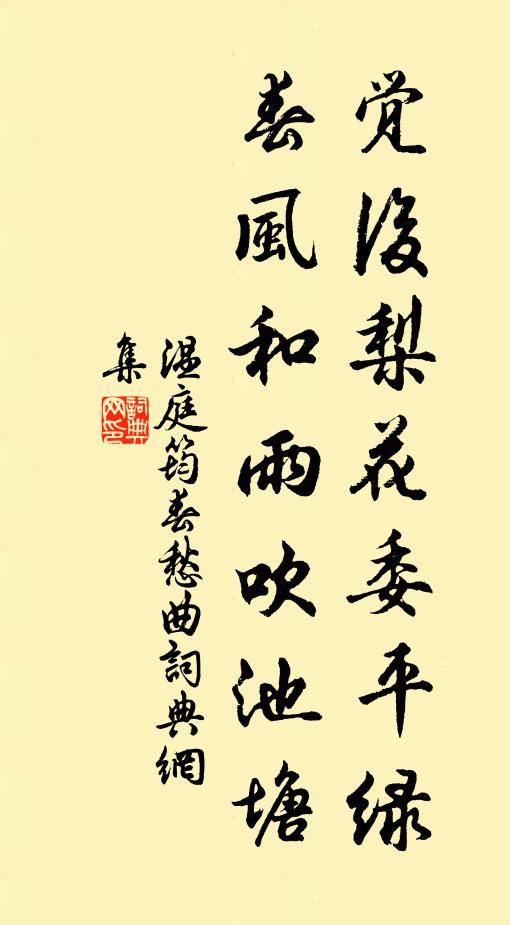 觉後梨花委平緑
春風和雨吹池塘
温庭筠春愁曲詞典網
集
詞典
网印